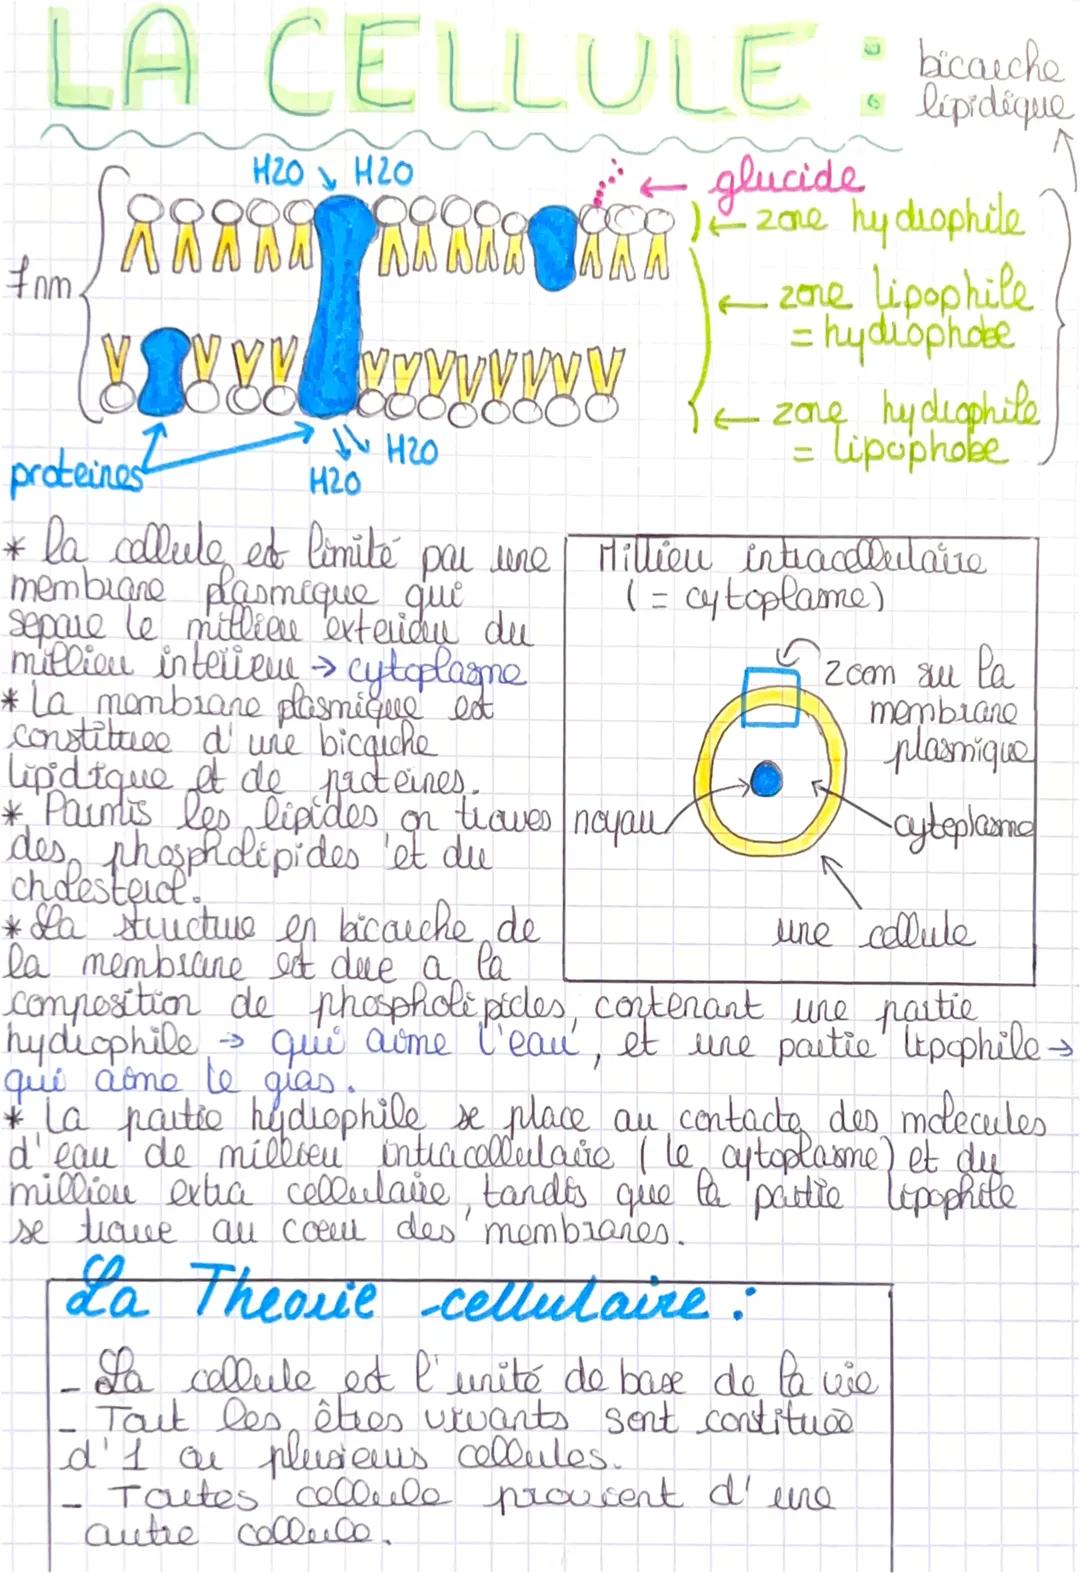 LA CELLULE :
bicouche
lipidique
H2O H2O
glucide
zone hydrophile
7nm
zone lipophile
= hydrophobe
zone hydrophile
= lipophobe
H2O
proteines
H2O
* la cellule est limité par une
membrane plasmique qui
separe le millieu exterieur du
millieu interieur → cytoplasme
* La membrane plasmique est
constituee d'une bicouche
lipidique et de proteines.
* Parmis les lipides on trouves
des phospholipides et du
cholesterol.
* La structure en bicouche de
la membrane est due a la
composition de phospholipides, contenant une partie
hydrophile → qui aime l'eau, et une partie lipophile →
qui aime le gras.
* La partie hydrophile se place au contacte des molecules
d'eau de millieu intracellulaire (le cytoplasme) et du
millieu extra cellulaire, tandis que la partie lipophile
se trouve au coeur des membranes.
Millieu intracellulaire
(= cytoplasme)
zoom sur la
membrane
plasmique
noyau
cytoplasme
une cellule
La Theorie cellulaire :
- La cellule est l'unité de base de la vie
- Tout les êtres vivants sont constitués
d'1 ou plusieurs cellules.
- Toutes cellule provient d'une
autre cellule.